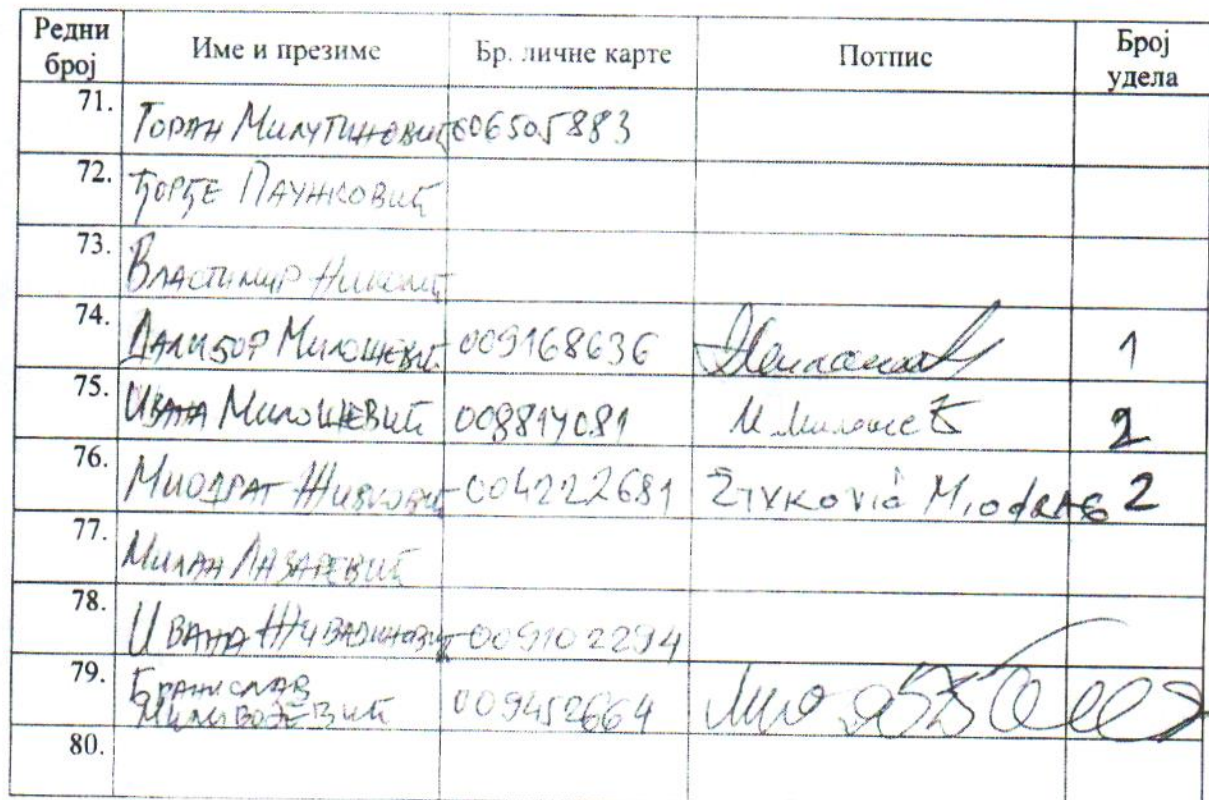 Редни број Име и презиме Бр. личне карте Потпис Број удела
71. Горан Милутиновић 006505883
72. Ђорђе Паунковић
73. Властимир Николић
74. Далибор Милошевић 009168636 1
75. Ивана Милошевић 008814081 2
76. Миодраг Живковић 004222681 Živković Miodrag 2
77. Милан Лазаревић
78. Ивана Живадиновић 009102294
79. Бранислав
Миливојевић 009452664
80.